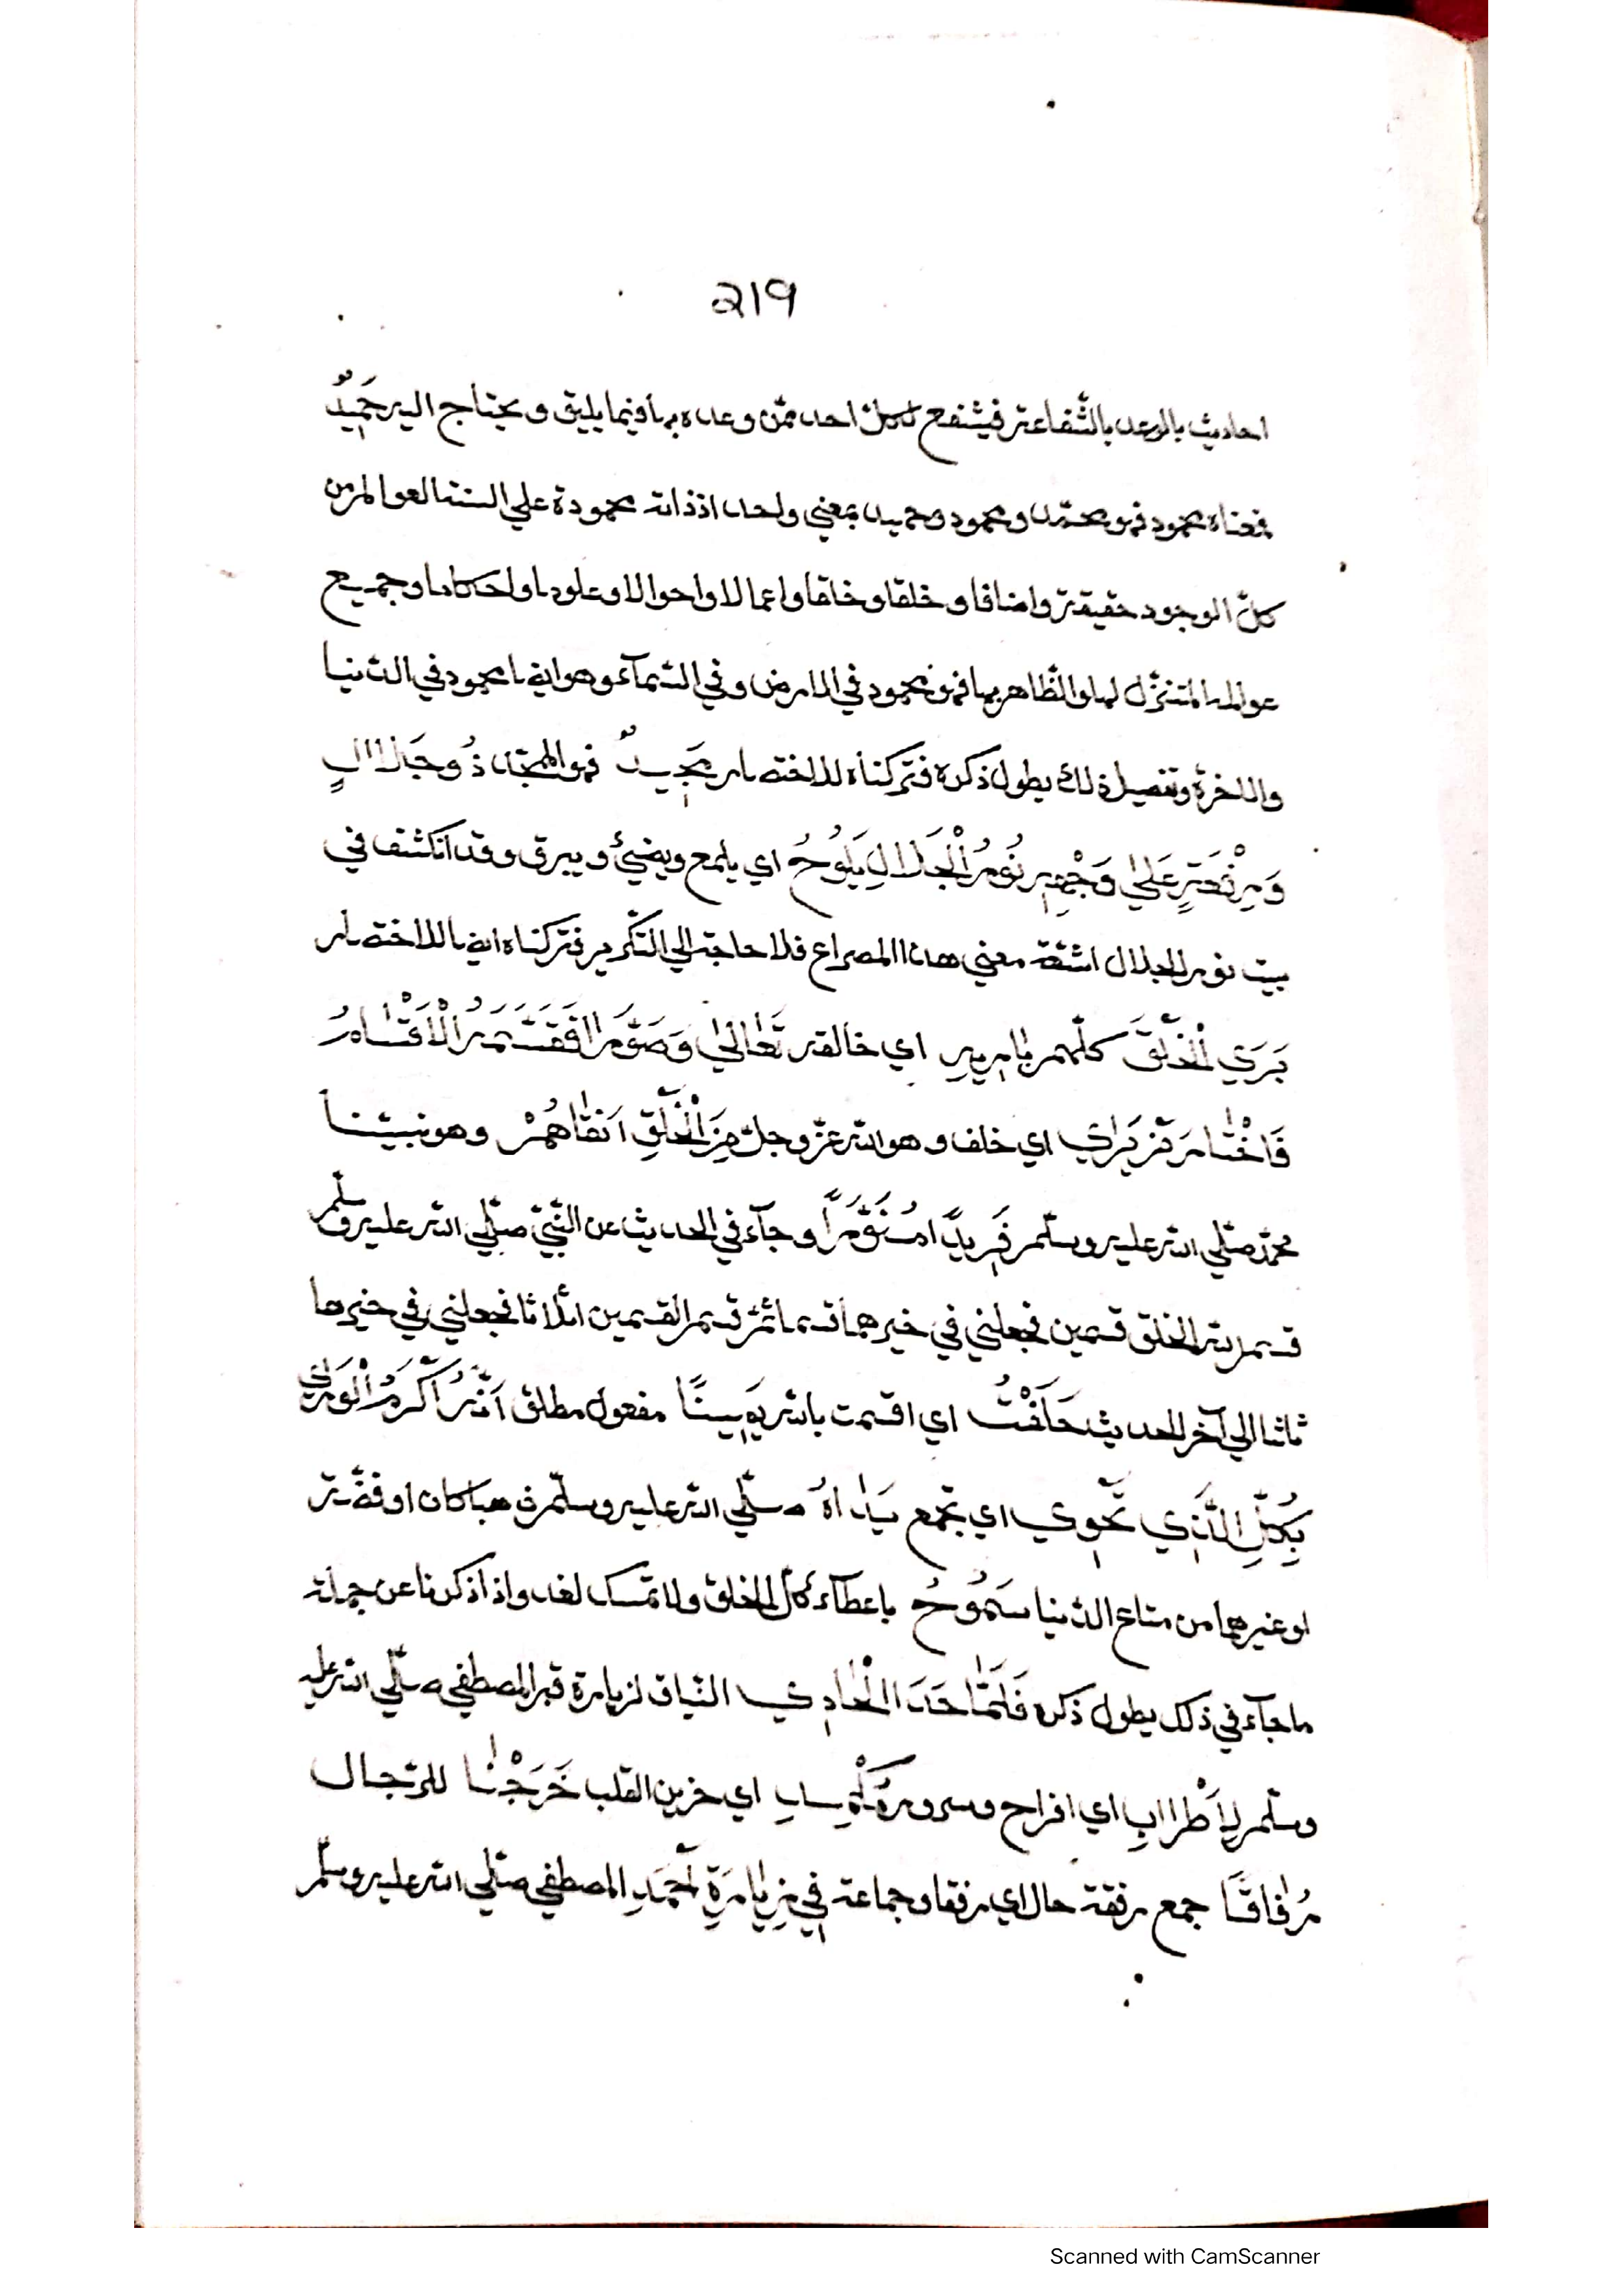 ٢١٩
احاديث بالوعد بالشّفاعة فيشفع لكلّ احد ممّن وعده بها فيما يليق و يحتاج اليه حَمِيدٌ
فمعناه محمود فهو محمّد و محمود و حميد بمعني واحد اذ ذاته محمودة علي السنة العوالم من
كلّ الوجود حقيقة و اضافا و خلقا و خلقا و اعمالا و احوالا و علوما و احكاما و جميع
عوالمه المتنزّل لها و الظّاهر بها فهو محمود في الارض و في السّمآء و هو ايضا محمود في الدّنيا
والاخرة و تفصيل ذلك يطول ذكره فتركناه للاختصار مَجِيدٌ فهو الممجّد ذُو جَلَالٍ
وَرِفْعَةٍ عَلَيٰ وَجْهِهِ نُورُ الْجَلَالِ يَلُوحُ اي يلمع ويضيئ و يبرق و قد انكشف في
بيت نور الجلال اشقّة معني هذا المصراع فلا حاجة الي التّكرير فتركناه ايضا للاختصار
بَرَي الْخَلْقَ كلّهم بٰارِيهِ اي خالقه تَعٰالَيٰ وَصَوَّرَا فَقَسَّمَ الْاَقْسٰامُ
فَاخْتٰارَ مَنْ بَرٰاي اي خلق و هو اللّه عزّ و جلّ مِنَ الْخَلْقِ اَنقٰاهُمْ و هو نبيّنا
محمّد صلّي اللّه عليه وسلّم فَرِيدًا مُنَوَّرًا و جآء في الحديث عن النّبيّ صلّي اللّه عليه وسلّم
قسم اللّه الخلق قسمين فجعلني في خيرهما قسما ثمّ قسم القسمين اثلاثا فجعلني في خيرها
ثلثا الي آخر الحديث حَلَفْتُ اي اقسمت باللّه يَمِينًا مفعول مطلق اَنَّهُ اَكْرَمُ الْوَرَيٰ
بِكُلِّ الَّذِي تَحْوِي اي تجمع يَدٰاهُ صلّي اللّه عليه وسلّم ذهبا كان او فضّة
او غيرهما من متاع الدّنيا سَمُوحُ باعطآء كلّ الخلق ولا تمسك لغد و اذا ذكرنا عن جملة
ما جآء في ذلك يطول ذكره فَلَمّٰا حَدَ الْحٰادِي النّياق لزيارة قبر المصطفي صلّي اللّه عليه
وسلّم لِاَطْرَابِ اي افراح وسرور مُكْمِدِ اي حزين القلب خَرَجْنٰا للرّجال
رُفٰاقًا جمع رفقة حال اي رفقا و جماعة فِي زِيٰارَةِ اَحْمَدِ المصطفي صلّي اللّه عليه وسلّم
Scanned with CamScanner